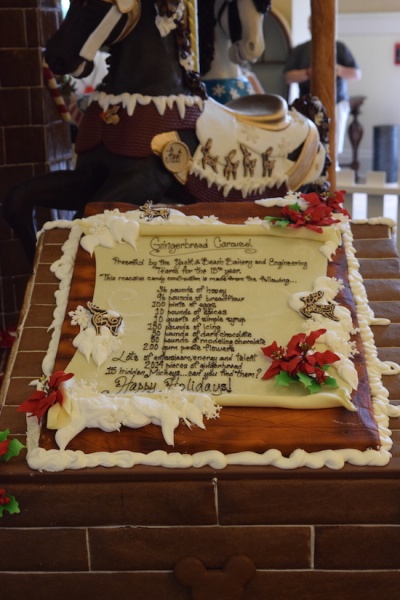 Gingerbread Carousel
Presented by the Yacht & Beach Bakery and Engineering
Teams for the 15th year.
This massive candy construction is made from the following...
36 pounds of honey
96 pounds of breadflour
100 pints of eggs
10 pounds of spices
10 quarts of simple syrup
150 pounds of icing
50 pounds of dark chocolate
50 pounds of modeling chocolate
200 gum paste flowers
Lots of enthusiasm, energy and talent
2014 pieces of gingerbread
15 hidden Mickeys...can you find them?
Happy Holidays!